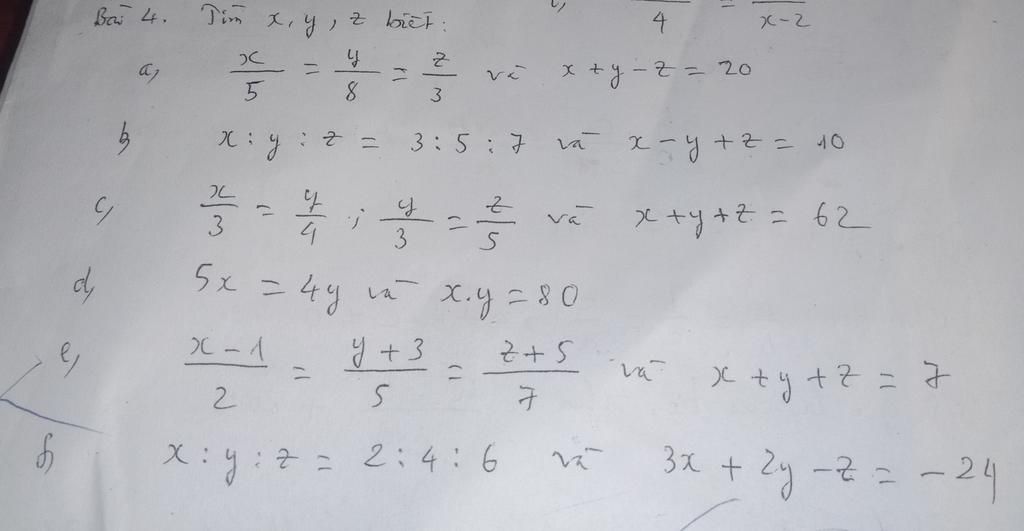 Bài 4. Tìm x, y, z biết:
4 = x-2
a, x/5 = y/8 = z/3 và x + y - z = 20
b, x : y : z = 3 : 5 : 7 và x - y + z = 10
c, x/3 = y/4 ; y/3 = z/5 và x + y + z = 62
d, 5x = 4y và x.y = 80
e, x - 1/2 = y + 3/5 = z + 5/7 và x + y + z = 7
f, x : y : z = 2 : 4 : 6 và 3x + 2y - z = - 24